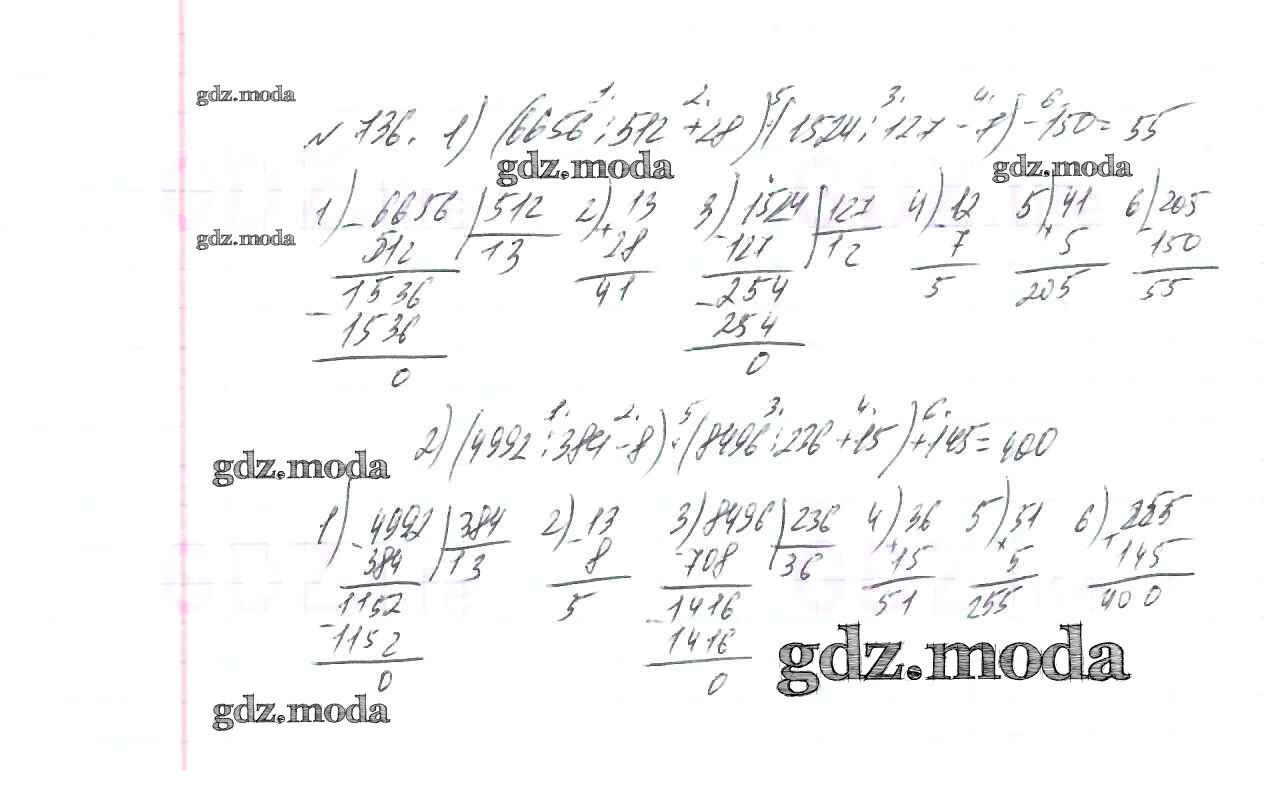 gdz.moda
№ 736. 1) (6656 : 512 + 28) · (1524 : 127 - 7) - 150 = 55
1. 2. 5 3. 4. 6.
gdz.moda gdz.moda
1) - 6656 | 512 2) + 13 3) - 1524 | 127 4) - 12 5) × 41 6) - 205
gdz.moda
512 13 28 127 12 7 5 150
- 1536 41 - 254 5 205 55
1536 254
0 0
1. 2. 5 3. 4. 6.
2) (4992 : 384 - 8) · (8496 : 236 + 15) + 145 = 400
gdz.moda
1) - 4992 | 384 2) - 13 3) - 8496 | 236 4) + 36 5) × 51 6) + 255
384 13 8 708 36 15 5 145
- 1152 5 - 1416 51 255 400
1152 1416
gdz.moda
0 0
gdz.moda